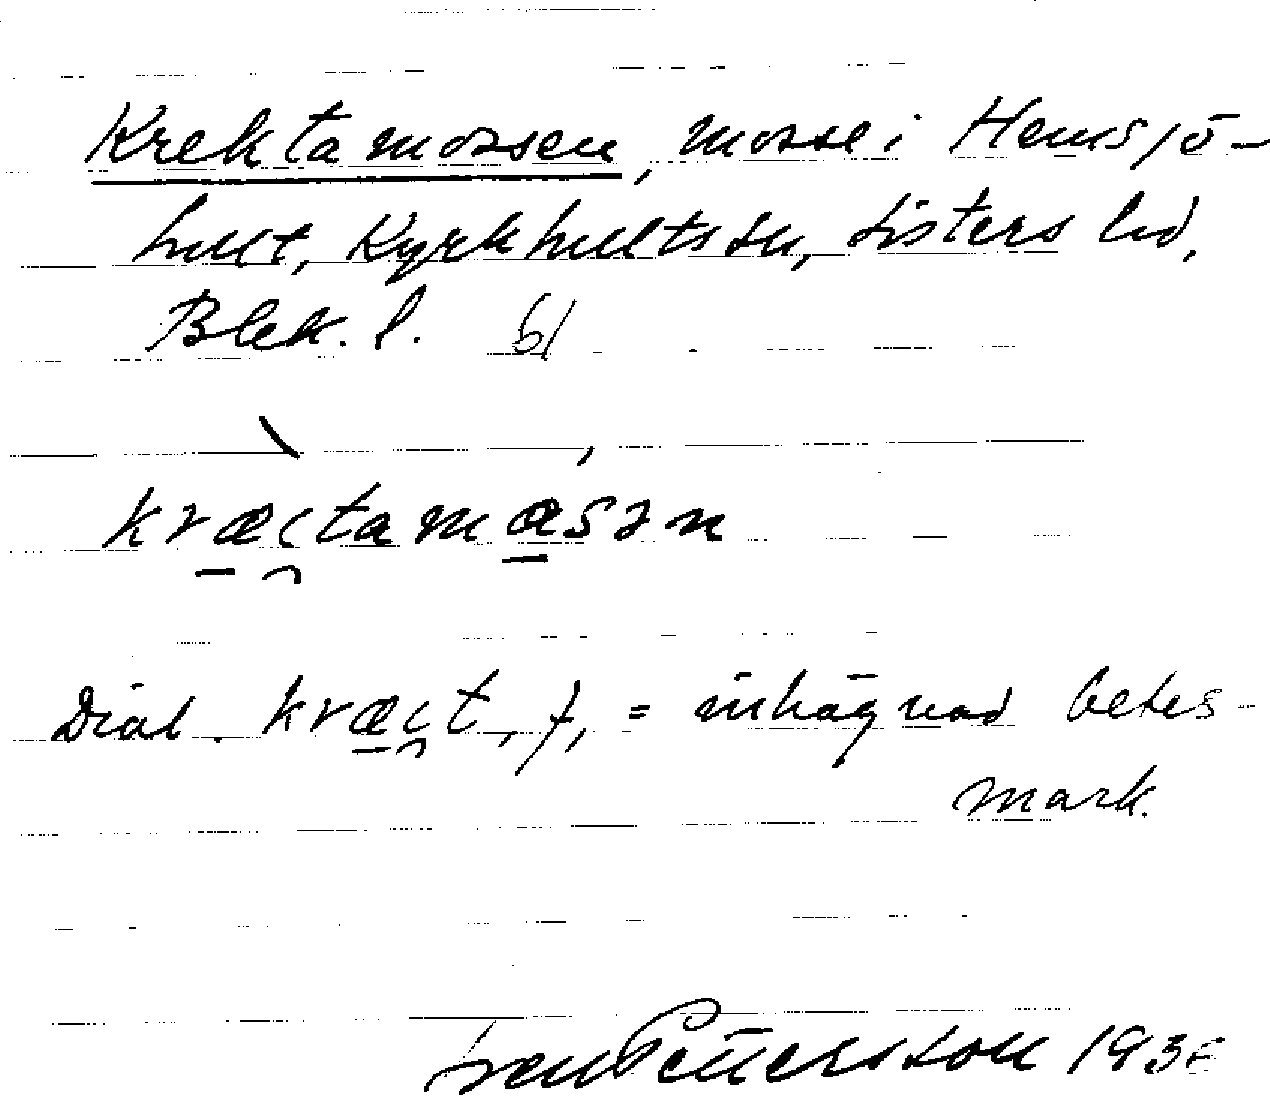 Krektamossen, mosse i Hemsjö-
hult, Kyrkhults sn, Listers hd,
Blek. l. bl
kræctamæsən
Dial. kræct, f, = inhägnad betes-
mark.
Sven Pettersson 193